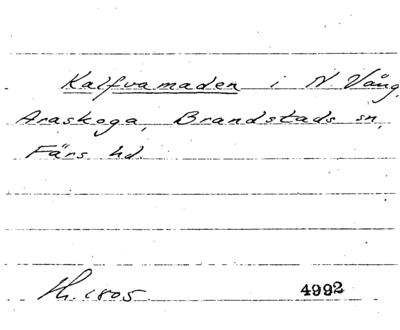 Kalfvamaden i N. Vång,
Araskoga, Brandstads sn,
Färs hd.
Th. 1805 4992